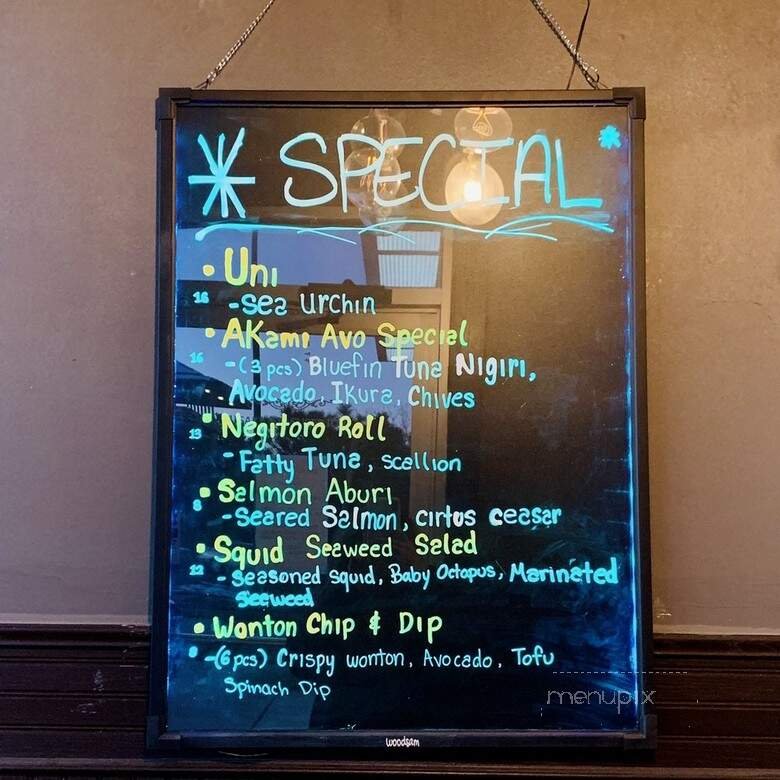 * SPECIAL *
• Uni
16 -Sea Urchin
• Akami Avo Special
16 -(3 pcs) Bluefin Tuna Nigiri,
Avocado, Ikura, Chives
• Negitoro Roll
13 -Fatty Tuna, scallion
• Salmon Aburi
8 -Seared Salmon, cirtus ceasar
• Squid Seaweed Salad
12 -Seasoned squid, Baby Octopus, Marinated
Seeweed
• Wonton Chip & Dip
-(6 pcs) Crispy wonton, Avocado, Tofu
Spinach Dip
menupix
woodsam